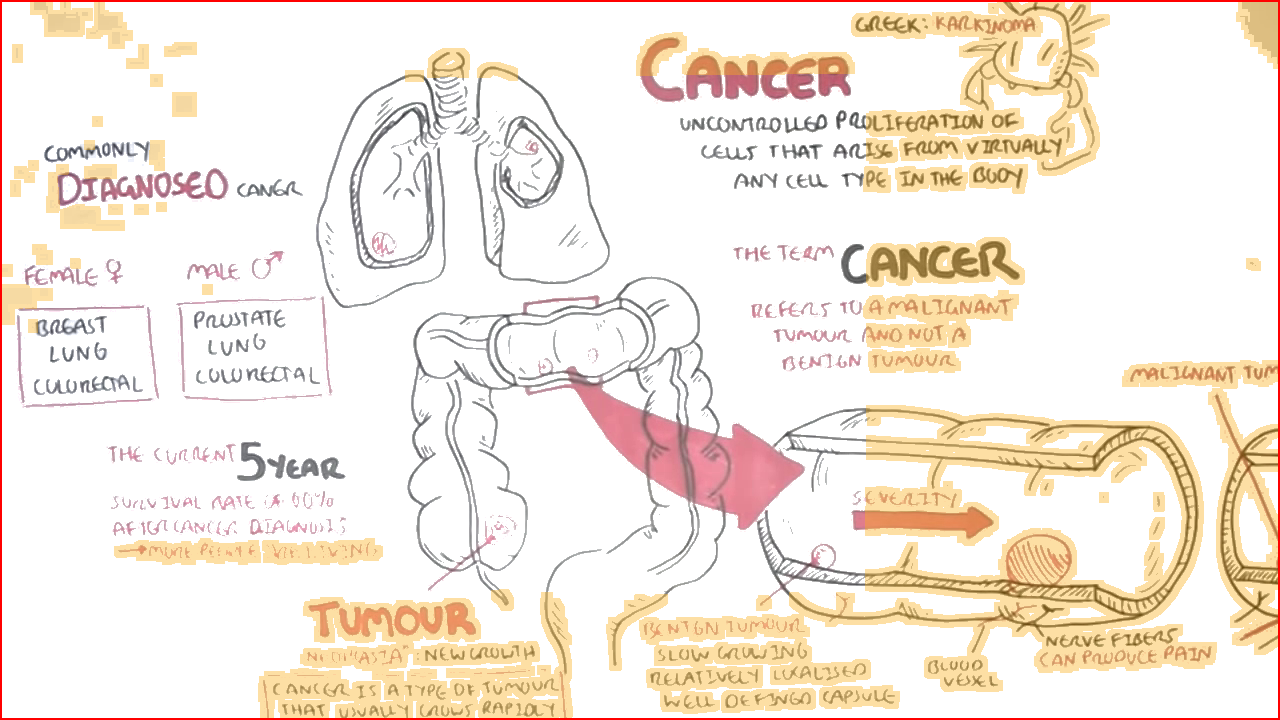 GREEK: KARKINOMA
CANCER
UNCONTROLLED PROLIFERATION OF
CELLS THAT ARISE FROM VIRTUALLY
ANY CELL TYPE IN THE BODY
COMMONLY
DIAGNOSED CANER
FEMALE ♀
MALE ♂
BREAST
LUNG
COLORECTAL
PROSTATE
LUNG
COLORECTAL
THE TERM CANCER
REFERS TO A MALIGNANT
TUMOUR AND NOT A
BENIGN TUMOUR
MALIGNANT TUM
THE CURRENT 5 YEAR
SURVIVAL RATE OF 60%
AFTER CANCER DIAGNOSIS
→ MORE PEOPLE LIVING
SEVERITY
TUMOUR
: NEW GROWTH
CANCER IS A TYPE OF TUMOUR
THAT USUALLY GROWS RAPIDLY
BENIGN TUMOUR
SLOW GROWING
RELATIVELY LOCALISED
WELL DEFINED CAPSULE
BLOOD
VESSEL
NERVE FIBERS
CAN PRODUCE PAIN